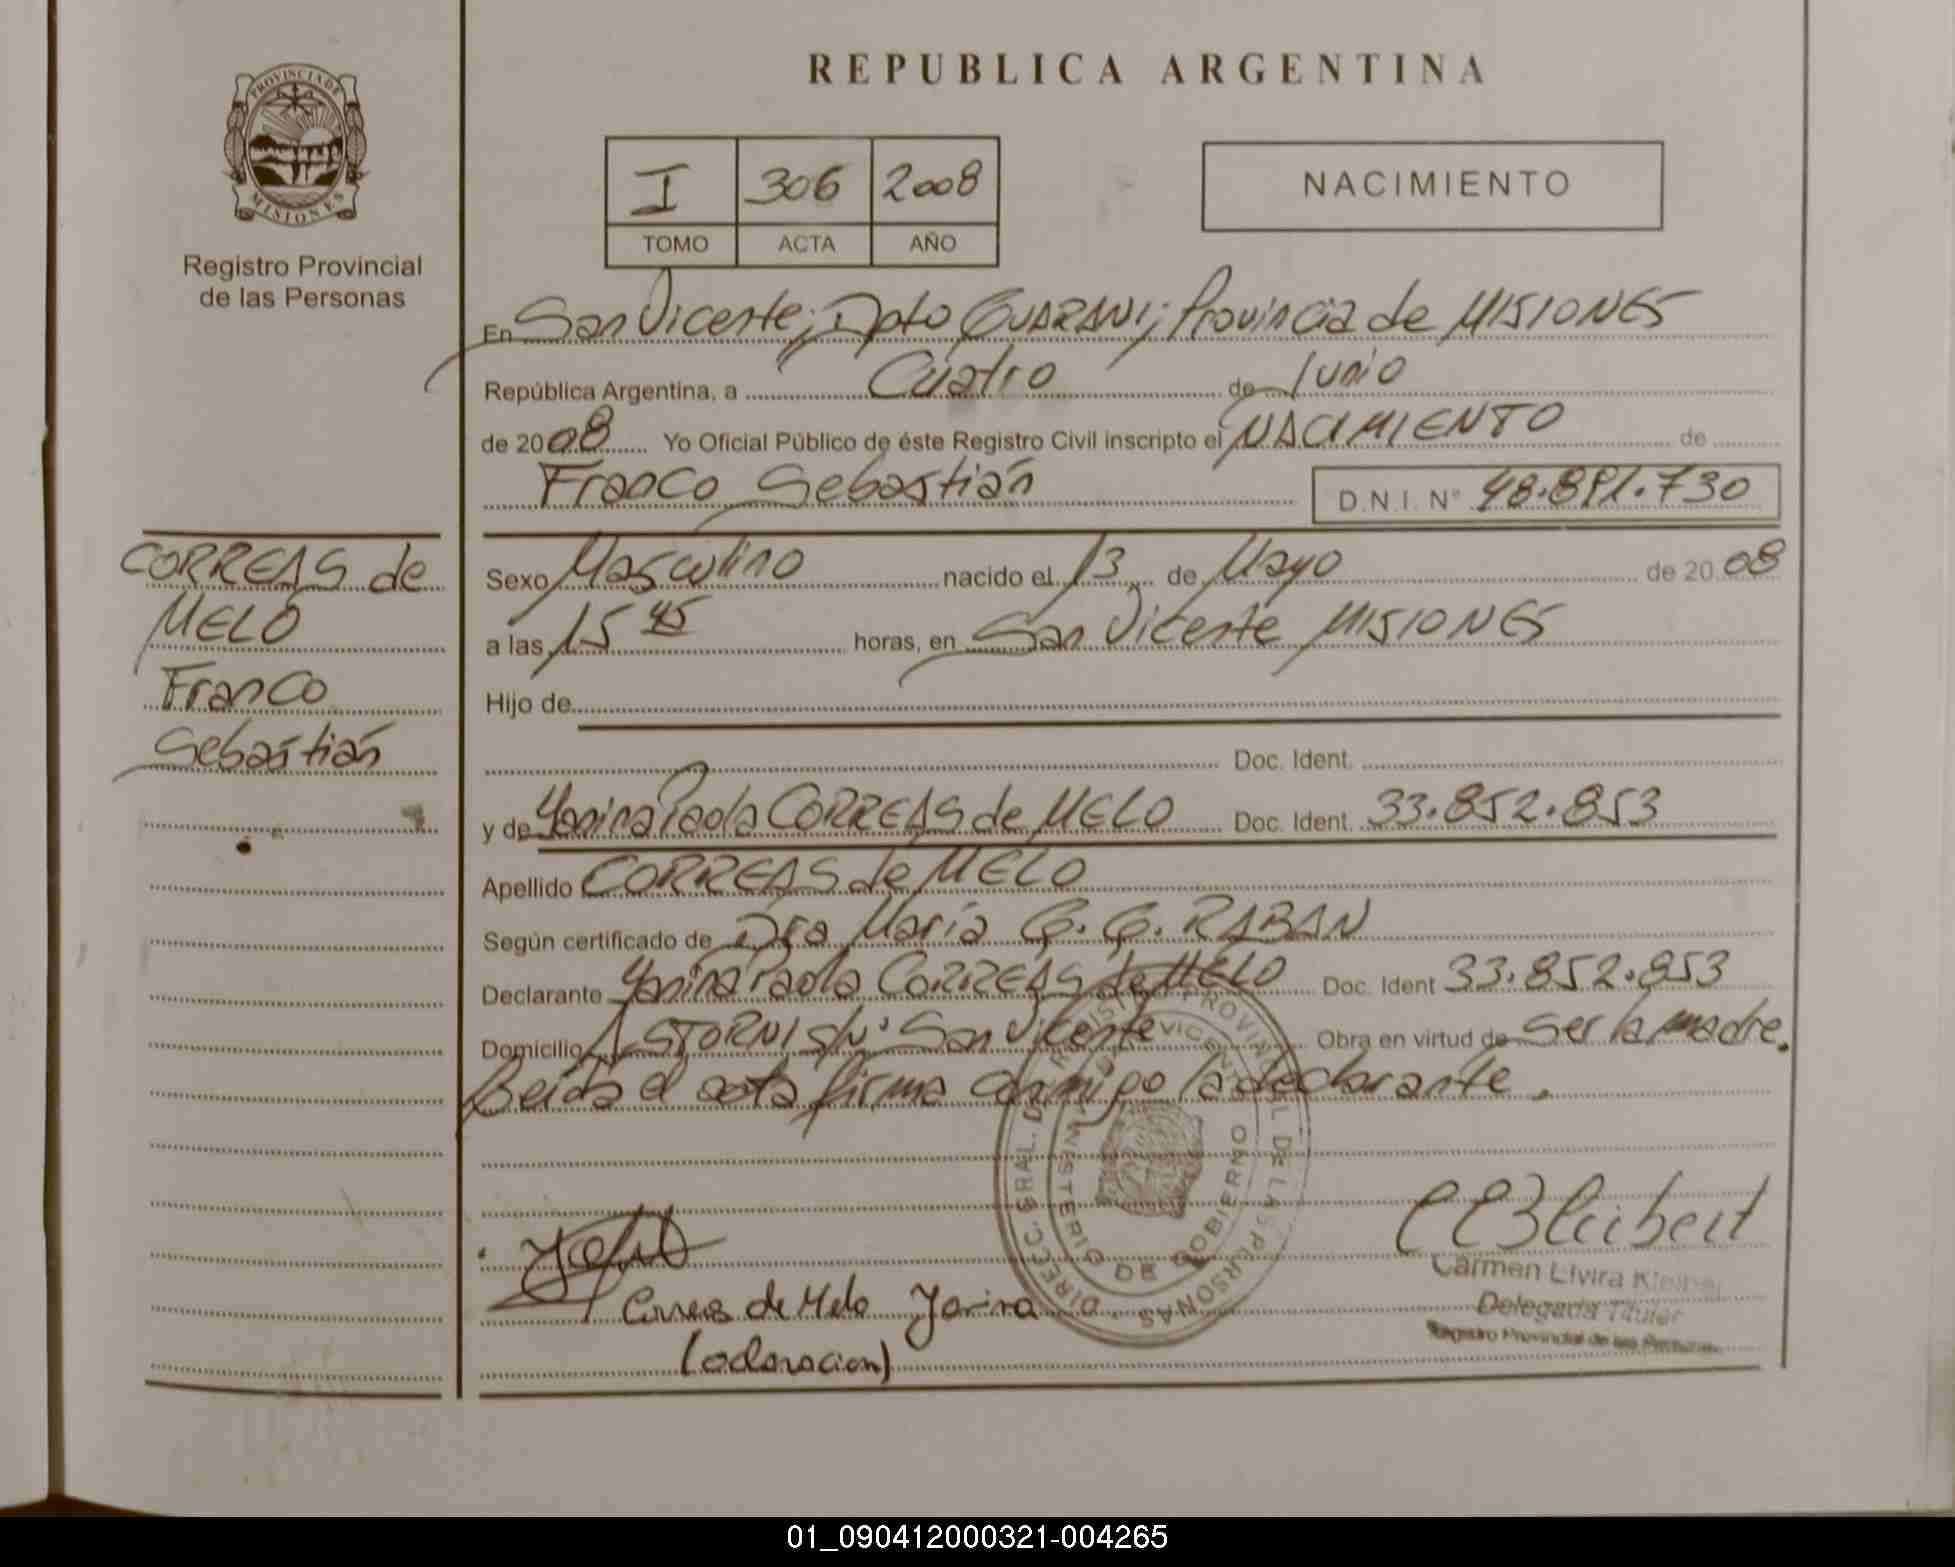 REPUBLICA ARGENTINA
PROVINCIA DE
MISIONES
Registro Provincial
de las Personas
I 306 2008
TOMO ACTA AÑO
NACIMIENTO
En San Vicente; Dpto GUARANI; Provincia de MISIONES
República Argentina, a Cuatro de Junio
de 2008 Yo Oficial Público de éste Registro Civil inscripto el NACIMIENTO de
Franco Sebastián D.N.I. Nº
CORREAS de
MELO
Franco
Sebastián
Sexo Masculino nacido el 13 de Mayo de 2008
a las 15 45 horas, en San Vicente MISIONES
Hijo de
Doc. Ident.
y de Yanina Paola CORREAS de MELO Doc. Ident. 33.852.853
Apellido CORREAS de MELO
Según certificado de Dra María G. G. RABAN
Declarante Yanina Paola CORREAS de MELO Doc. Ident 33.852.853
Domicilio A. STORNI S/Nº San Vicente Obra en virtud de Ser la madre.
Leída el acta firma conmigo la declarante.
DIRECC. GRAL. DE REGISTRO PROVINCIAL DE LAS PERSONAS
SAN VICENTE
MINISTERIO DE GOBIERNO
Correas de Melo Yanina
(aclaracion)
Carmen Elvira Kleiber
Delegada Titular
Registro Provincial de las Personas
01_090412000321-004265